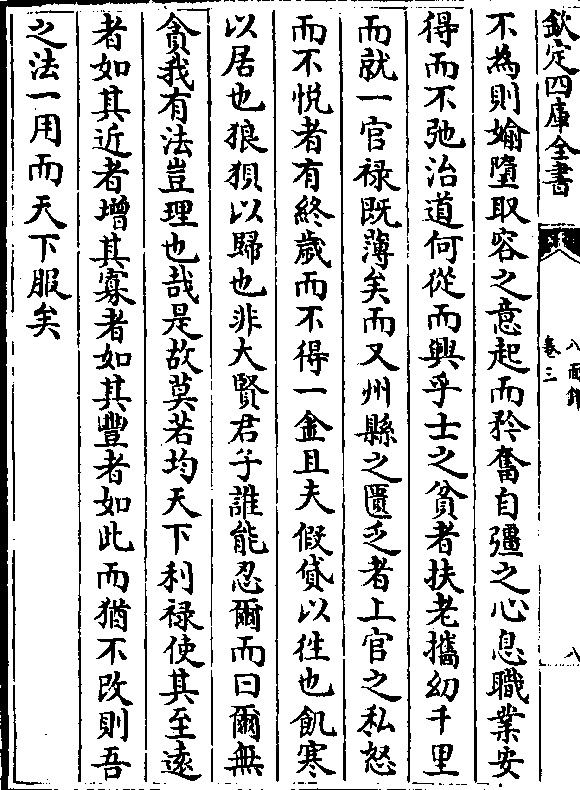 欽定四庫全書
八面鋒
卷三
八
不為則媮墮取容之意起而矜奮自彊之心息職業安
得而不弛治道何從而興乎士之貧者扶老攜幼千里
而就一官禄既薄矣而又州縣之匱乏者上官之私怒
而不恱者有終歲而不得一金且夫假貸以徃也飢寒
以居也狼狽以歸也非大賢君子誰能忍爾而曰爾無
貪我有法豈理也哉是故莫若均天下利禄使其至遠
者如其近者增其寡者如其豐者如此而猶不改則吾
之法一用而天下服矣